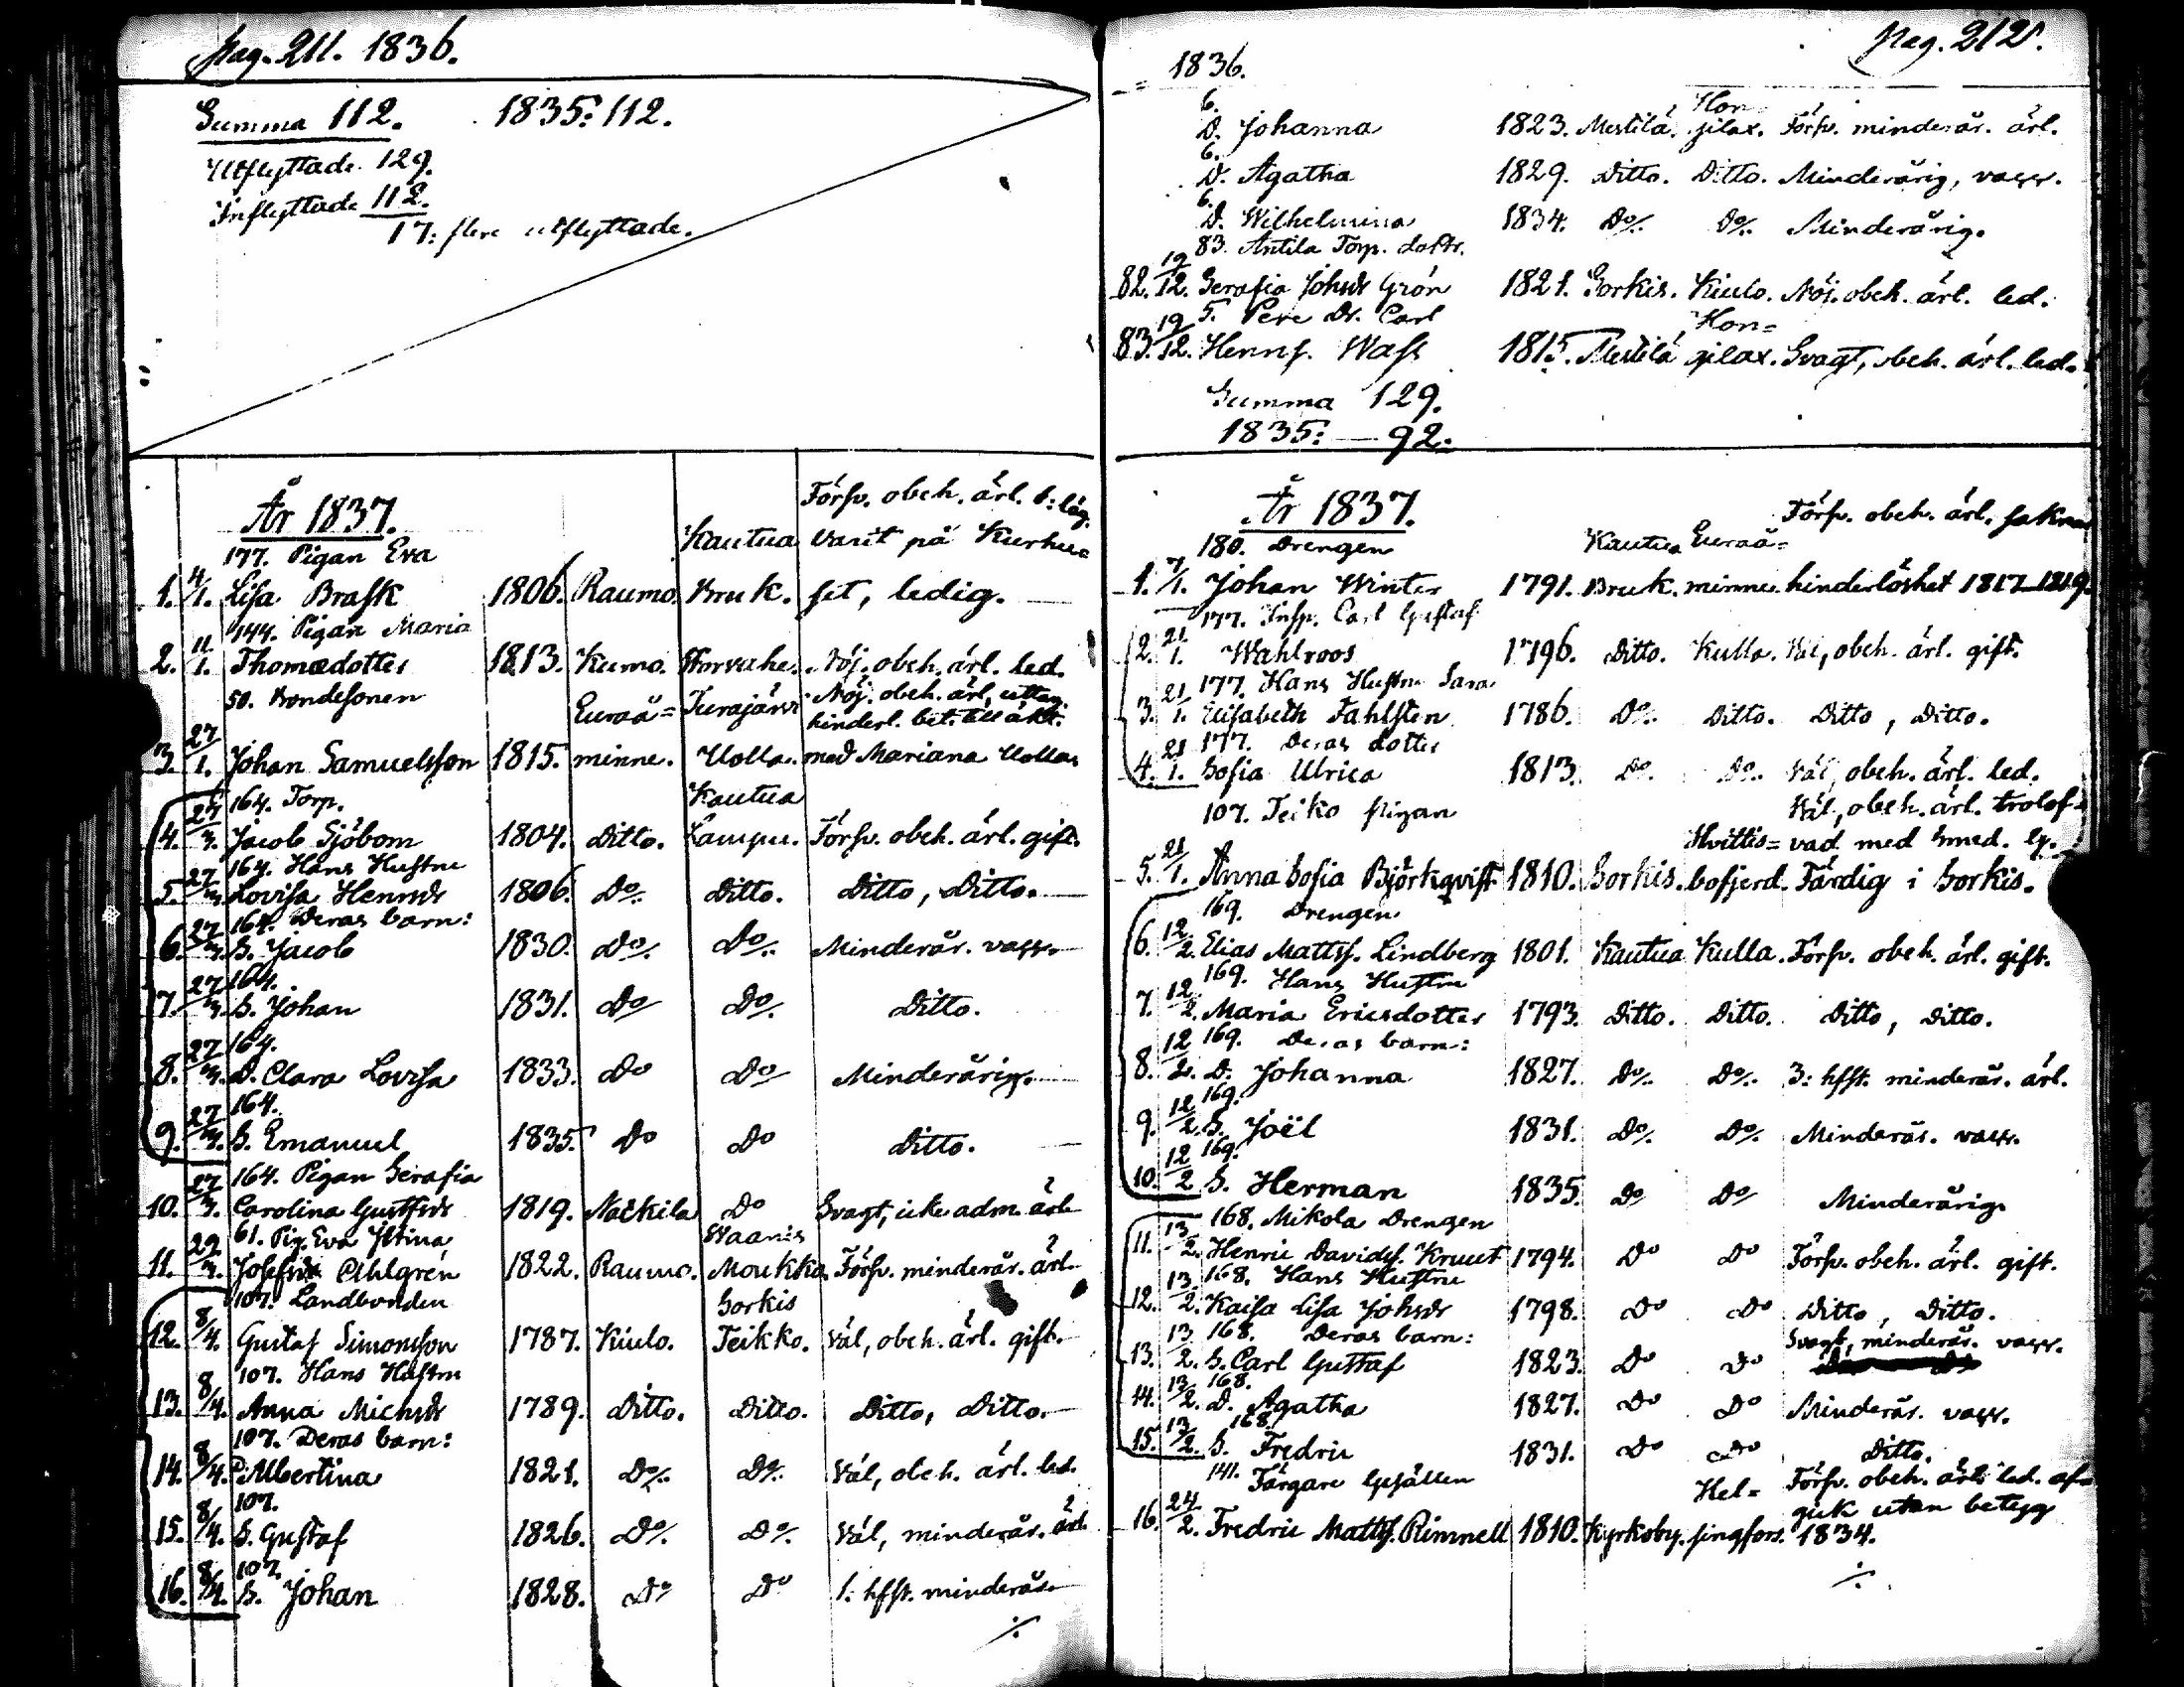 Pag. 211. 1836.
Summa 112. 1835: 112.
Utflyttade 129.
Inflyttade 112.
17: flere utflyttade.
År 1837.
Försv. obeh. ärl. 
177. Pigan Eva Kautua varit på Kurhu=
1. 4/1. Lisa Brask 1806. Raumo. Bruk. set, ledig.
144. Pigan Maria
2. 11/1. Thomædotter 1813. Kumo. Nöj. obeh. ärl. led.
50. Bondesonen Euraå= Turajärvi Nöj. obeh. ärl. uttag.
hinderl. bet. till äkt.
3. 27/1. Johan Samuelsson 1815. minne. Uolla. med Mariana Uolla
164. Torp. Kautua
4. 27/3. Jacob Sjöbom 1804. Ditto. Lampu. Försv. obeh. ärl. gift.
164. Hans Hustru
5. 27/3. Lovisa Hennsdr 1806. Do/. Ditto. Ditto, Ditto.
164. Deras barn:
6. 27/3. S. Jacob 1830. Do/. Do/. Minderår. vacc.
164.
7. 27/3. S. Johan 1831. Do/ Do/. Ditto.
164.
8. 27/3. D. Clara Lovisa 1833. Do Do/ Minderårig.
164.
9. 27/3. S. Emanuel 1835 Do Do Ditto.
164. Pigan Serafia
10. 27/3. Carolina Gustfsdr 1819. Nackila Do Svagt, icke adm. ärl.
61. Pig. Eva Stina Waanis
11. 29/3. Josefsdr Ahlgrén 1822. Raumo. Moukka Försv. minderår. ärl.
107. Landbonden Sorkis
12. 8/4. Gustaf Simonsson 1787. Kiulo. Teikko. Väl, obeh. ärl. gift.
107. Hans Hustru
13. 8/4. Anna Michsdr 1789. Ditto. Ditto. Ditto, Ditto.
107. Deras barn:
14. 8/4. D. Albertina 1821. Do/. Do/. Väl, obeh. ärl. led.
107.
15. 8/4. S. Gustaf 1826. Do/. Do/. Väl, minderår. ärl.
107.
16. 8/4. S. Johan 1828. Do Do 1: hfst. minderår.
./.
Pag. 212.
1836.
6. Hon=
D. Johanna 1823. Mestilä. gilax. Försv. minderår. ärl.
6.
D. Agatha 1829. Ditto. Ditto. Minderårig, vacc.
6.
D. Wilhelmina 1834. Do/. Do/. Minderårig.
83. Antila Torp. dottr.
82. 19/12. Serafia Johsdr Grön 1821. Sorkis. Kiulo. Nöj. obeh. ärl. led.
5. Pere Dr. Carl Hon=
83. 19/12. Hennss. Wass 1815. Mestilä gilax. Svagt, obeh. ärl. led.
Summa 129.
1835: — 92.
År 1837.
Försv. obeh. ärl. sakn
180. Drengen Kautua Euraå=
1. 7/1. Johan Winter 1791. Bruk. minne. hinderlöshet 1817–1819.
177. Insp. Carl Gustaf
2. 21/1. Wahlroos 1796. Ditto. Kulla. Väl, obeh. ärl. gift.
177. Hans Hustru Sara
3. 21/1. Elisabeth Fahlsten 1786. Do/. Ditto. Ditto, Ditto.
177. Deras dotter
4. 21/1. Sofia Ulrica 1813. Do. Do. Väl, obeh. ärl. led.
107. Teiko Pigan Väl, obeh. ärl. trolof=
Hvittis= vad med Smed. 
5. 21/1. Anna Sofia Björkqvist 1810. Sorkis. bofjerd. Färdig i Sorkis.
169. Drengen
6. 12/2. Elias Mattss. Lindberg 1801. Kautua Kulla. Försv. obeh. ärl. gift.
169. Hans Hustru
7. 12/2. Maria Ericsdotter 1793. Ditto. Ditto. Ditto, Ditto.
169. Deras barn:
8. 12/2. D. Johanna 1827. Do/. Do/. 3: hfst. minderår. ärl.
169.
9. 12/2. S. Joël 1831. Do/. Do/. Minderår. vacc.
169.
10. 12/2 S. Herman 1835. Do Do/ Minderårig.
168. Mikola Drengen
11. 13/2. Henric Davidss. Kruut 1794. Do Do Försv. obeh. ärl. gift.
168. Hans Hustru
12. 13/2. Kaisa Lisa Johsdr 1798. Do Do Ditto, Ditto.
168. Deras barn: Svagt, minderår. vacc.
13. 13/2. S. Carl Gustaf 1823. Do Do
168.
14. 13/2. D. Agatha 1827. Do Do Minderår. vacc.
168.
15. 13/2. S. Fredric 1831. Do Do Ditto.
141. Färgare Gesällen Hel= Försv. obeh. ärl. led. af=
gick utan betyg
16. 24/2. Fredric Mattss. Rimnell 1810. Kyrkoby. singfors. 1834.
./.